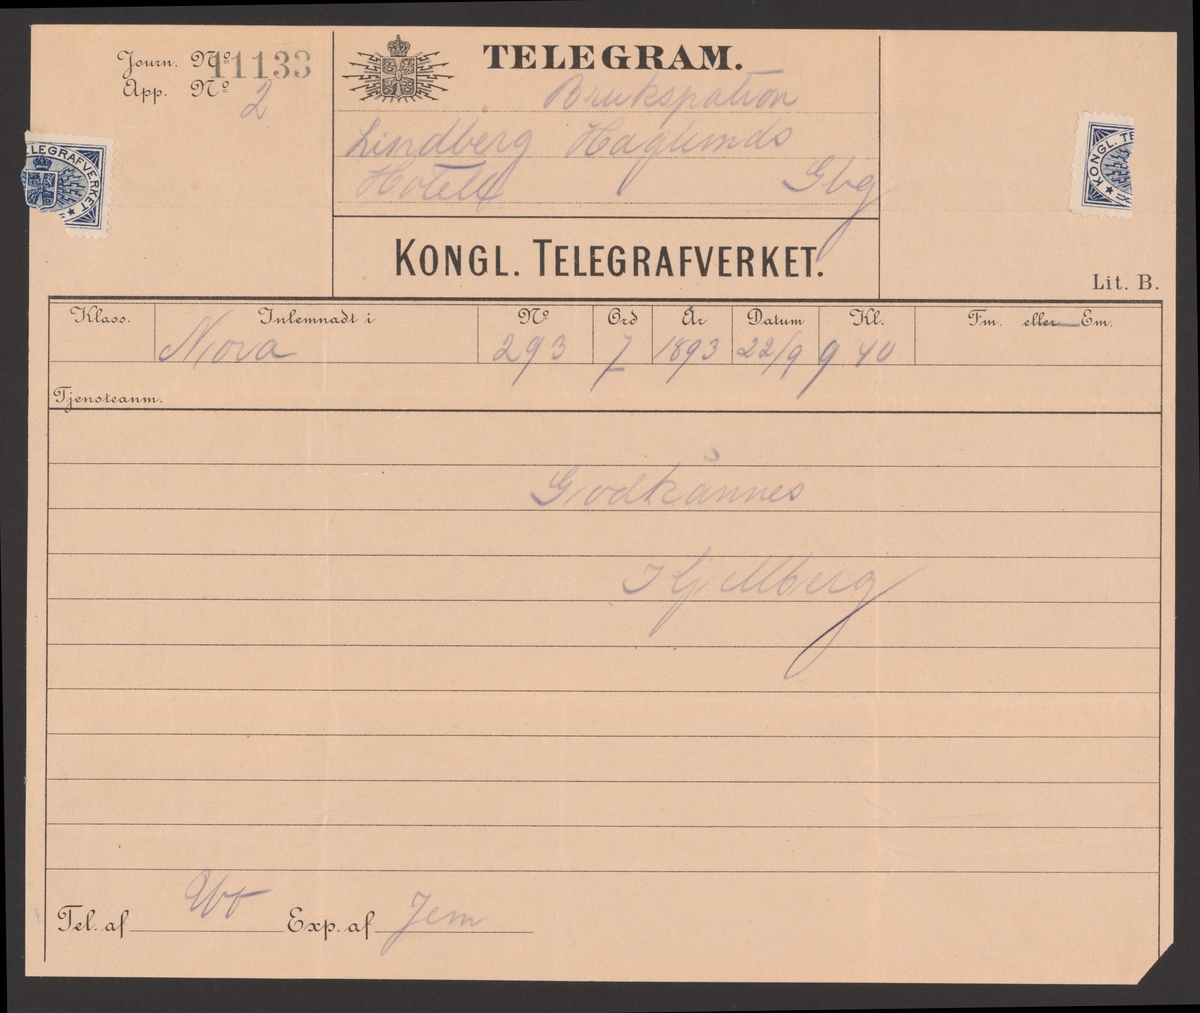 Journ. Nº 11133
App. Nº 2
TELEGRAM.
Brukspatron
Lindberg Haglunds
Hotell Gbg
KONGL. TELEGRAFVERKET.
Lit. B.
ELEGRAFVERKET
KONGL. TE
Klass. Inlemnadt i Nº Ord År Datum Kl. Fm. eller Em.
Nora 293 7 1893 22/9 9 40
Tjensteanm.
Godkännes
Kjellberg
Tel. af Exp. af Jem